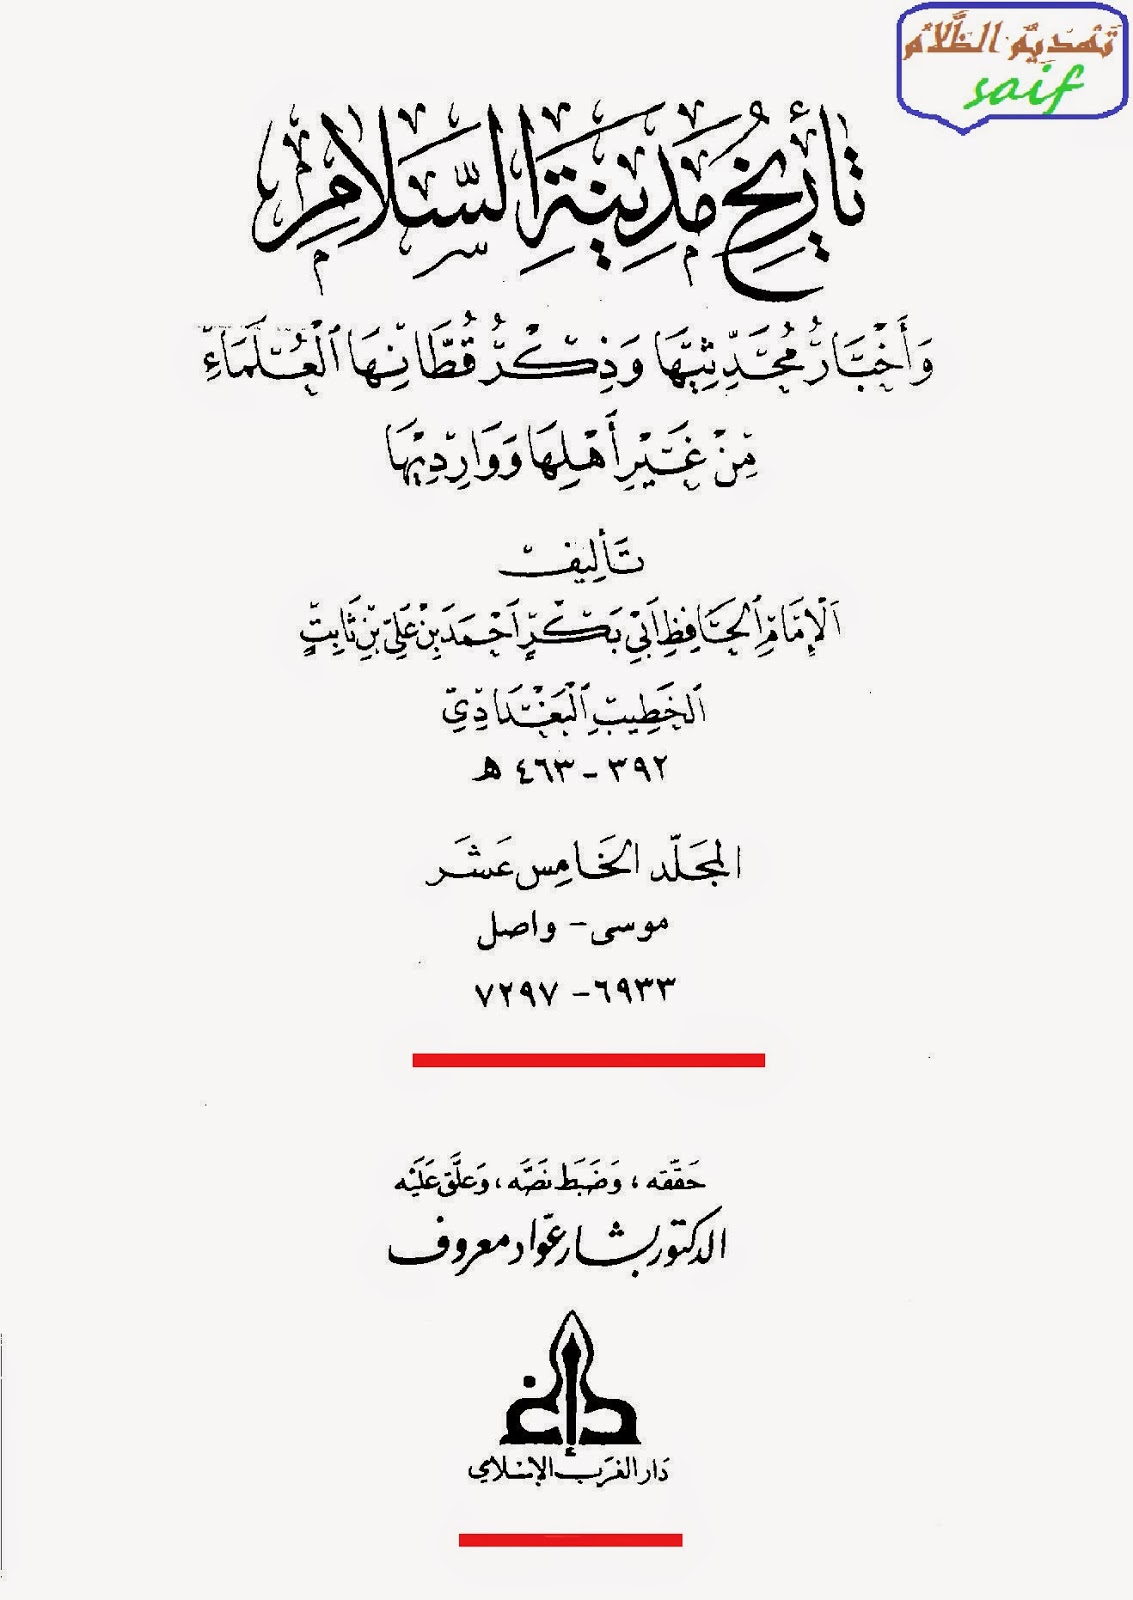 تَهْدِيمُ الظَّلَامِ
saif
تَأْرِيخُ مَدِينَةِ السَّلَامِ
وَأَخْبَارُ مُحَدِّثِيهَا وَذِكْرُ قُطَّانِهَا الْعُلَمَاءِ
مِنْ غَيْرِ أَهْلِهَا وَوَارِدِيهَا
تَأْلِيفْ
اَلْإِمَامِ الْحَافِظِ أَبِي بَكْرٍ أَحْمَدَ بْنِ عَلِيِّ بْنِ ثَابِتٍ
اَلْخَطِيبِ الْبَغْدَادِيّ
٣٩٢ - ٤٦٣ هـ
المجَلّد الخَامِس عَشَر
موسى - واصل
٦٩٣٣ - ٧٢٩٧
حَقّقه ، وَضَبَط نصّه ، وَعَلَّق عَلَيْه
الدكتور بشار عوّاد معروف
دَار الغَرب الإسْلامي